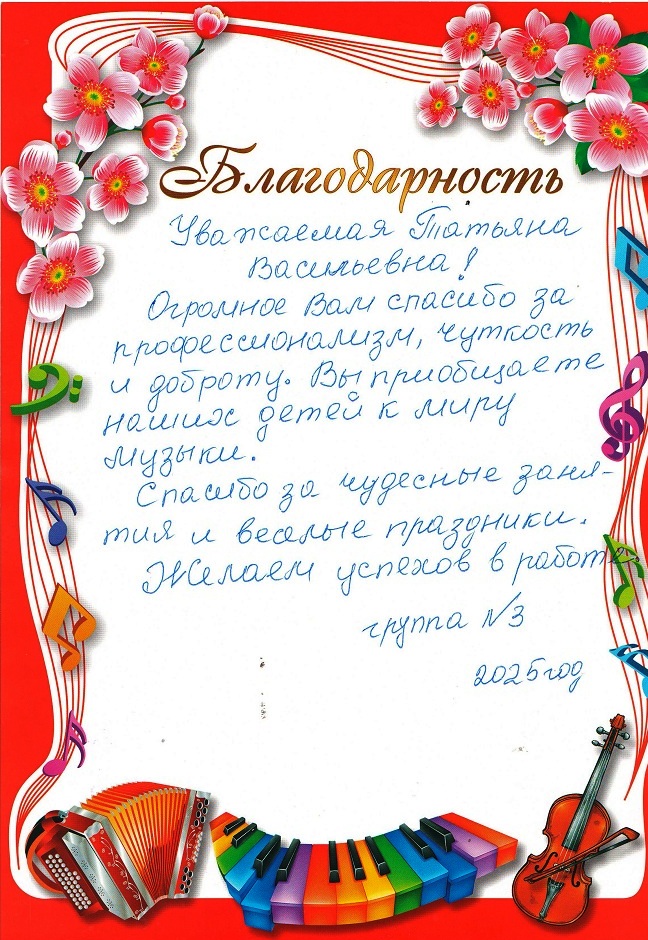 Благодарность
Уважаемая Татьяна
Васильевна!
Огромное Вам спасибо за
профессионализм, чуткость
и доброту. Вы приобщаете
наших детей к миру
музыки.
Спасибо за чудесные заня-
тия и веселые праздники.
Желаем успехов в работе.
группа №3
2025 год